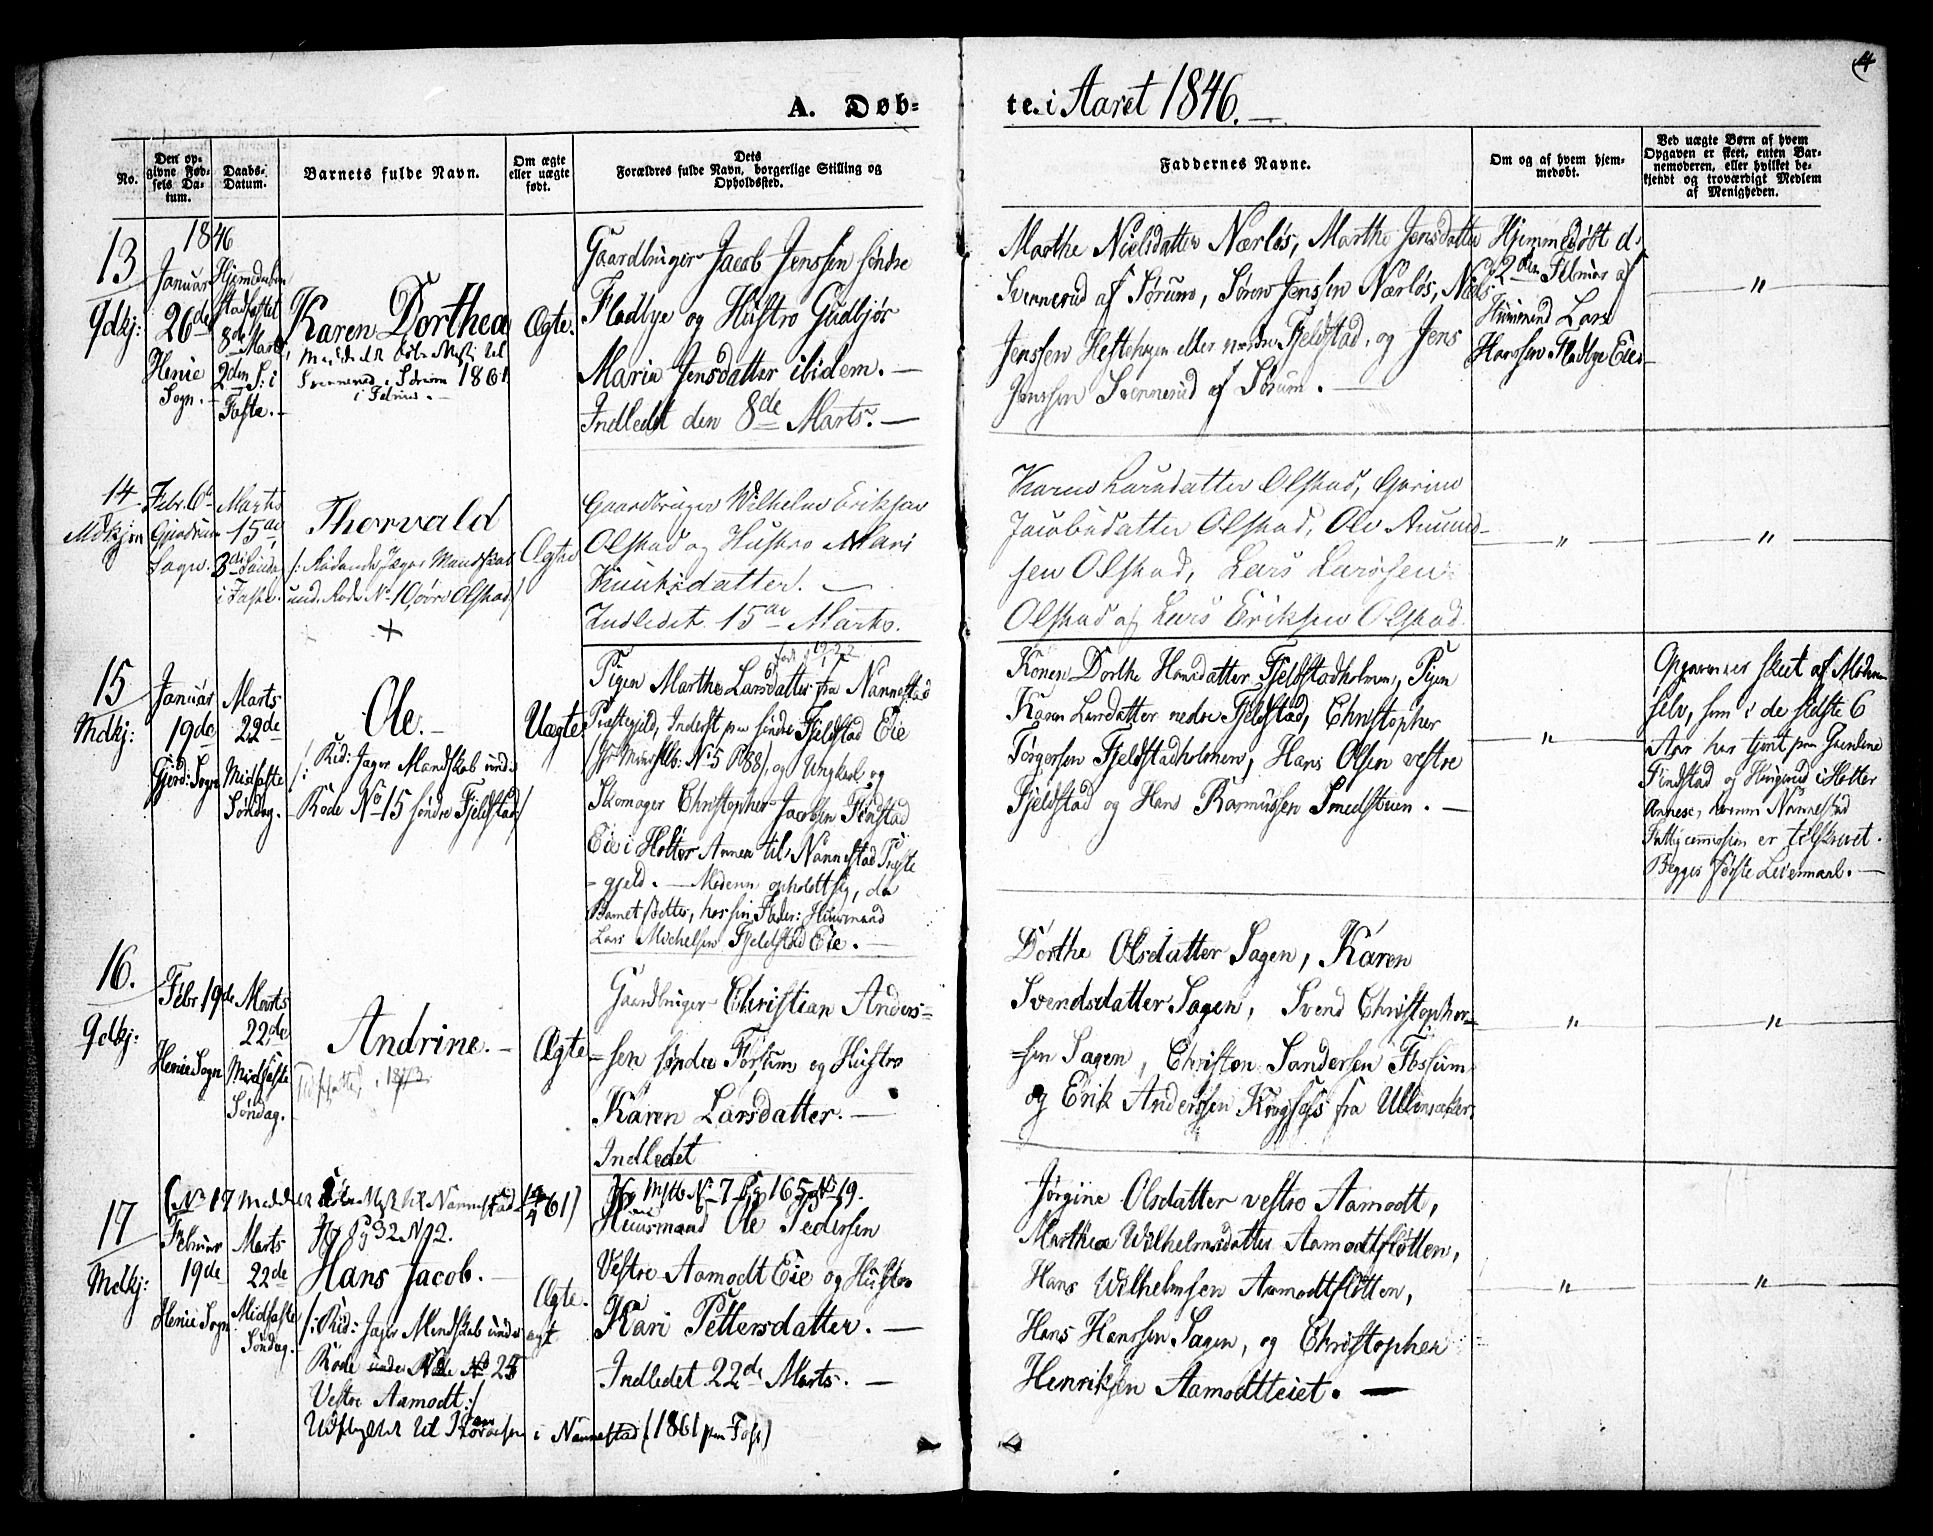 4
A. Døb-
te i Aaret 1846.
No.
Den op-
givne Fød-
sels Da-
tum.
Daabs-
Datum.
Barnets fulde Navn.
Om ægte
eller uægte
født.
Dets
Forældres fulde Navn, borgerlige Stilling og
Opholdssted.
Faddernes Navne.
Om og af hvem hjem-
medøbt.
Ved uægte Børn af hvem
Opgaven er skeet, enten Bar-
nemoderen, eller hvilket be-
kjendt og troværdigt Medlem
af Menigheden.
13
Qdkj:
1846
Januar
26de
Henie
Sogn.
Hjemdaaben
stadfæstet
8de Marts
2den S: i
Faste.
Karen Dorthea
1861
i Februar.
Ægte.
Gaardbruger Jacob Jenssen søndre
Fladbye og Hustro Gudbjør
Maria Jensdatter ibidem.
Indledet den 8de Marts.
Marthe Nielsdatter Nærløs, Marthe Jensdatter
Svennerud af Sørum, Søren Jenssen Nærløs, Niels
Jenssen Heftehagen eller nedre Fjeldstad, og Jens
Jenssen Svennerud af Sørum.
Hjemmedøbt d.
2den Februar af
Huusmand Lars
Hanssen Fladbye Eie
"
14
Mdkjøn
Febr. 6te
Gjerdrum
Sogn.
Marts
15de
3die Sønda
i Faste.
Thorvald
/: Ridende Jæger Mandskab
und. Rode No 1 Øvre Olstad/
+
Ægte
Gaardbruger Wilhelm Eriksen
Olstad og Hustro Mari
Knutsdatter.
Indledet 15de Marts.
Karen Larsdatter Olstad, Gorine
Jacobsdatter Olstad, Ole Amund-
sen Olstad, Lars Larssen
Olstad af Lars Eriksen Olstad.
"
"
15
Mdkj:
Januar
19de
Gjerd: Sogn
Marts
22de
Midfaste
Søndag.
Ole.
/: Rid: Jæger Mandskab und:
Rode No 15 søndre Fjeldstad/
Uægte
Pigen Marthe Larsdatter fra Nannestad
Præstegjeld, Inderst paa søndre Fjeldstad Eie
No 5 P 88/, og Ungkarl og
Skomager Christopher Jacobsen Finstad
Eie i Holter Annex til Nannestad Præste
gjeld. — Moderen opholdt sig, da
Barnet fødtes, hos sin Fader: Huusmand
Lars Michelsen Fjeldstad Eie.
Konen Dorthe Hansdatter Fjeldstadholmen, Pigen
Karen Larsdatter nedre Fjeldstad, Christopher
Torgersen Fjeldstadholmen, Hans Olsen vestre
Fjeldstad og Hans Rasmussen Smedstuen.
"
Opgaven er skeet af Moderen
selv, som i de sidste 6
Aar har tjent paa Gaardene
Findstad og Haugerud i Holter
Annex, hvorom Nannestad
Fattigcommission er tilskrevet.
Begges første Leiermaal.
16.
Qdkj:
Febr. 19de
Henie Sogn
Marts
22de
Midfaste
Søndag.
Andrine.
Ægte
Gaardbruger Christian Anders-
sen søndre Fossum og Hustro
Karen Larsdatter.
Indledet
Dorthe Olsdatter Sagen, Karen
Svendsdatter Sagen, Svend Christopher-
sen Sagen, Christen Sandersen Fossum
og Erik Anderssen Kragfos fra Ullensaker.
"
"
(No 17 Nannestad 61)
17
Mdkj:
Februar
19de
Henie Sogn
Marts
22de
Midfaste
Søndag.
Hans Jacob.
/: Rid: Jæger Mandskab under
Rode under Rode No 25
Vestre Aamodt:/
i Nannestad (1861
Ægte.
No 7 Pag 165 No 19.
Huusmand Ole Pedersen
Vestre Aamodt Eie og Hustro
Kari Pettersdatter.
Indledet 22de Marts.
Jørgine Olsdatter vestre Aamodt,
Marthea Wilhelmsdatter Aamodtfløtten,
Hans Wilhelmsen Aamodtfløtten,
Hans Hanssen Sagen, og Christopher
Henriksen Aamodteiet.
"
"